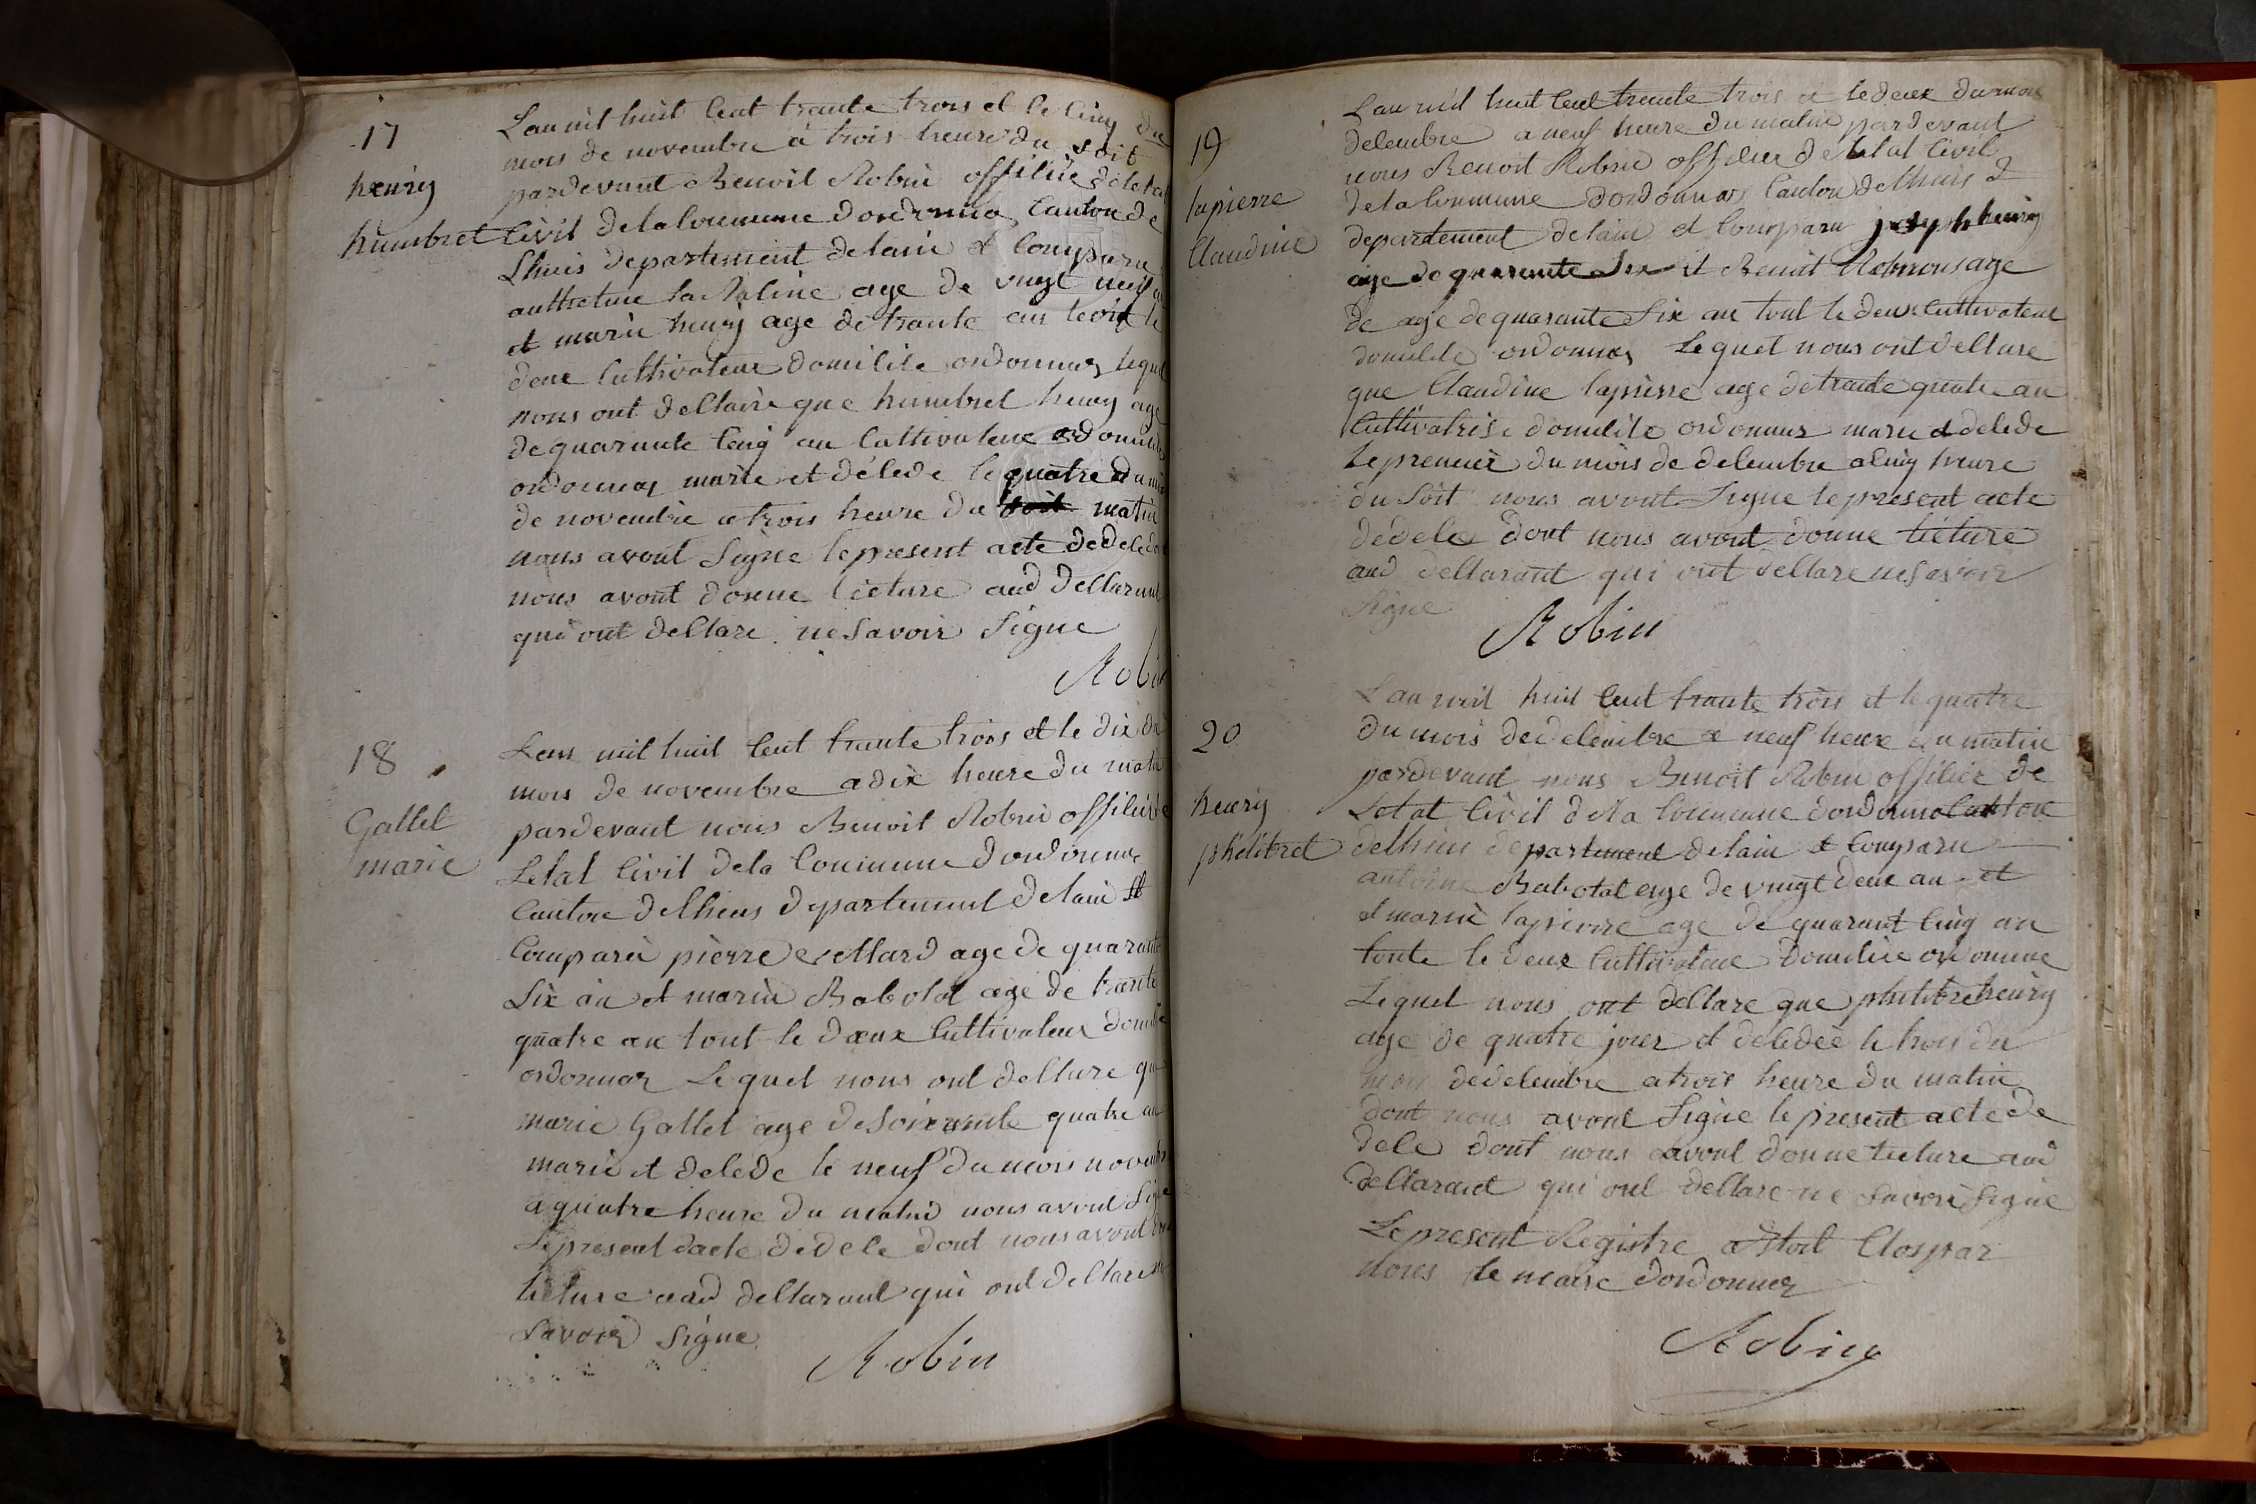 17
henriy
humbret
Lan mil huit Cent trante trois et le Cinq du
mois de novembre à trois heure du soit
pardevant Benoit Robin offilier deletat
Civil dela Commune dordonna Canton de
Lhuis departement delain et Comparu
age de vingt neuf
et marie henriy age de trante an
deux Cultivateur domilile ordonnaz lequel
nous ont dellaire que humbret henriy age
de quarante Cinq an Cultivateur domilile
ordonnaz marie et délede le quatre du mois
de novembre a trois heure du soit matin
nous avont Signe le present acte dedele dont
nous avont donne licture aud dellarant
qui ont dellare ne Savoir Signe
Robin
18
Gallet
marie
Lan mil huit Cent trante trois et le dix du
mois de novembre a dix heure du matin
pardevant nous Benoit Robin offilier de
Letat Civil dela Commune dordonnaz
Canton delhuis departement delain et
Comparù pierre age de quarante
Six an et mariè Babolat age de trante
quatre an tout le deux Cultivateur domilie
ordonnaz Lequel nous ont dellare que
marie Gallet age desoixante quatre an
mariè et delede le neuf du mois novembre
a quatre heure du matin nous avont Signe
Lepresent dacte dedele dont nous avont donne
licture aud dellarant qui ont dellare ne
Savoir Signe
Robin
19
lapierre
Claudine
Lan mil huit Cent trante trois et le deux du mois
delembre a neuf heure du matin pardevant
nous Benoit Robin offilier de Letat Civil
dela Commune dordonnaz Canton delhuis
departement delain et Comparu joseph henriy
age de quarante Six et Benoit age
de age de quarante Six an tout le deux Cultivateur
domilile ordonnaz Lequel nous ont dellare
que Claudine lapierre age de trante quatre an
Cultivatrise domilile ordonnaz marie et delede
le premier du mois de delembre a Cinq heure
du Soit nous avont Signe le present acte
dedele dont nous avont donne licture
aud dellarant qui ont dellare ne Savoir
Signe
Robin
20
henriy
philibret
Lan mil huit Cent trante trois et le quatre
du mois dedelembre a neuf heure du matin
pardevant nous Benoit Robin offilier de
Letat Civil dela Commune dordonna Canton
delhuis departement delain et Comparu
antoine Babolat age de vingt deux an et
et marie lapierre age de quarant Cinq an
toute le deux Cultivateur domilie ordonnaz
Lequel nous ont dellare que philibre henriy
age de quatre jour et deledée le trois du
mois dedelembre a trois heure du matin
dont nous avont Signe le present acte de
dele dont nous avont donne licture aud
dellarant qui ont dellare ne Savoir Signe
Le present Registre a Etoit Clospar
nous le maire dordonnaz
Robin